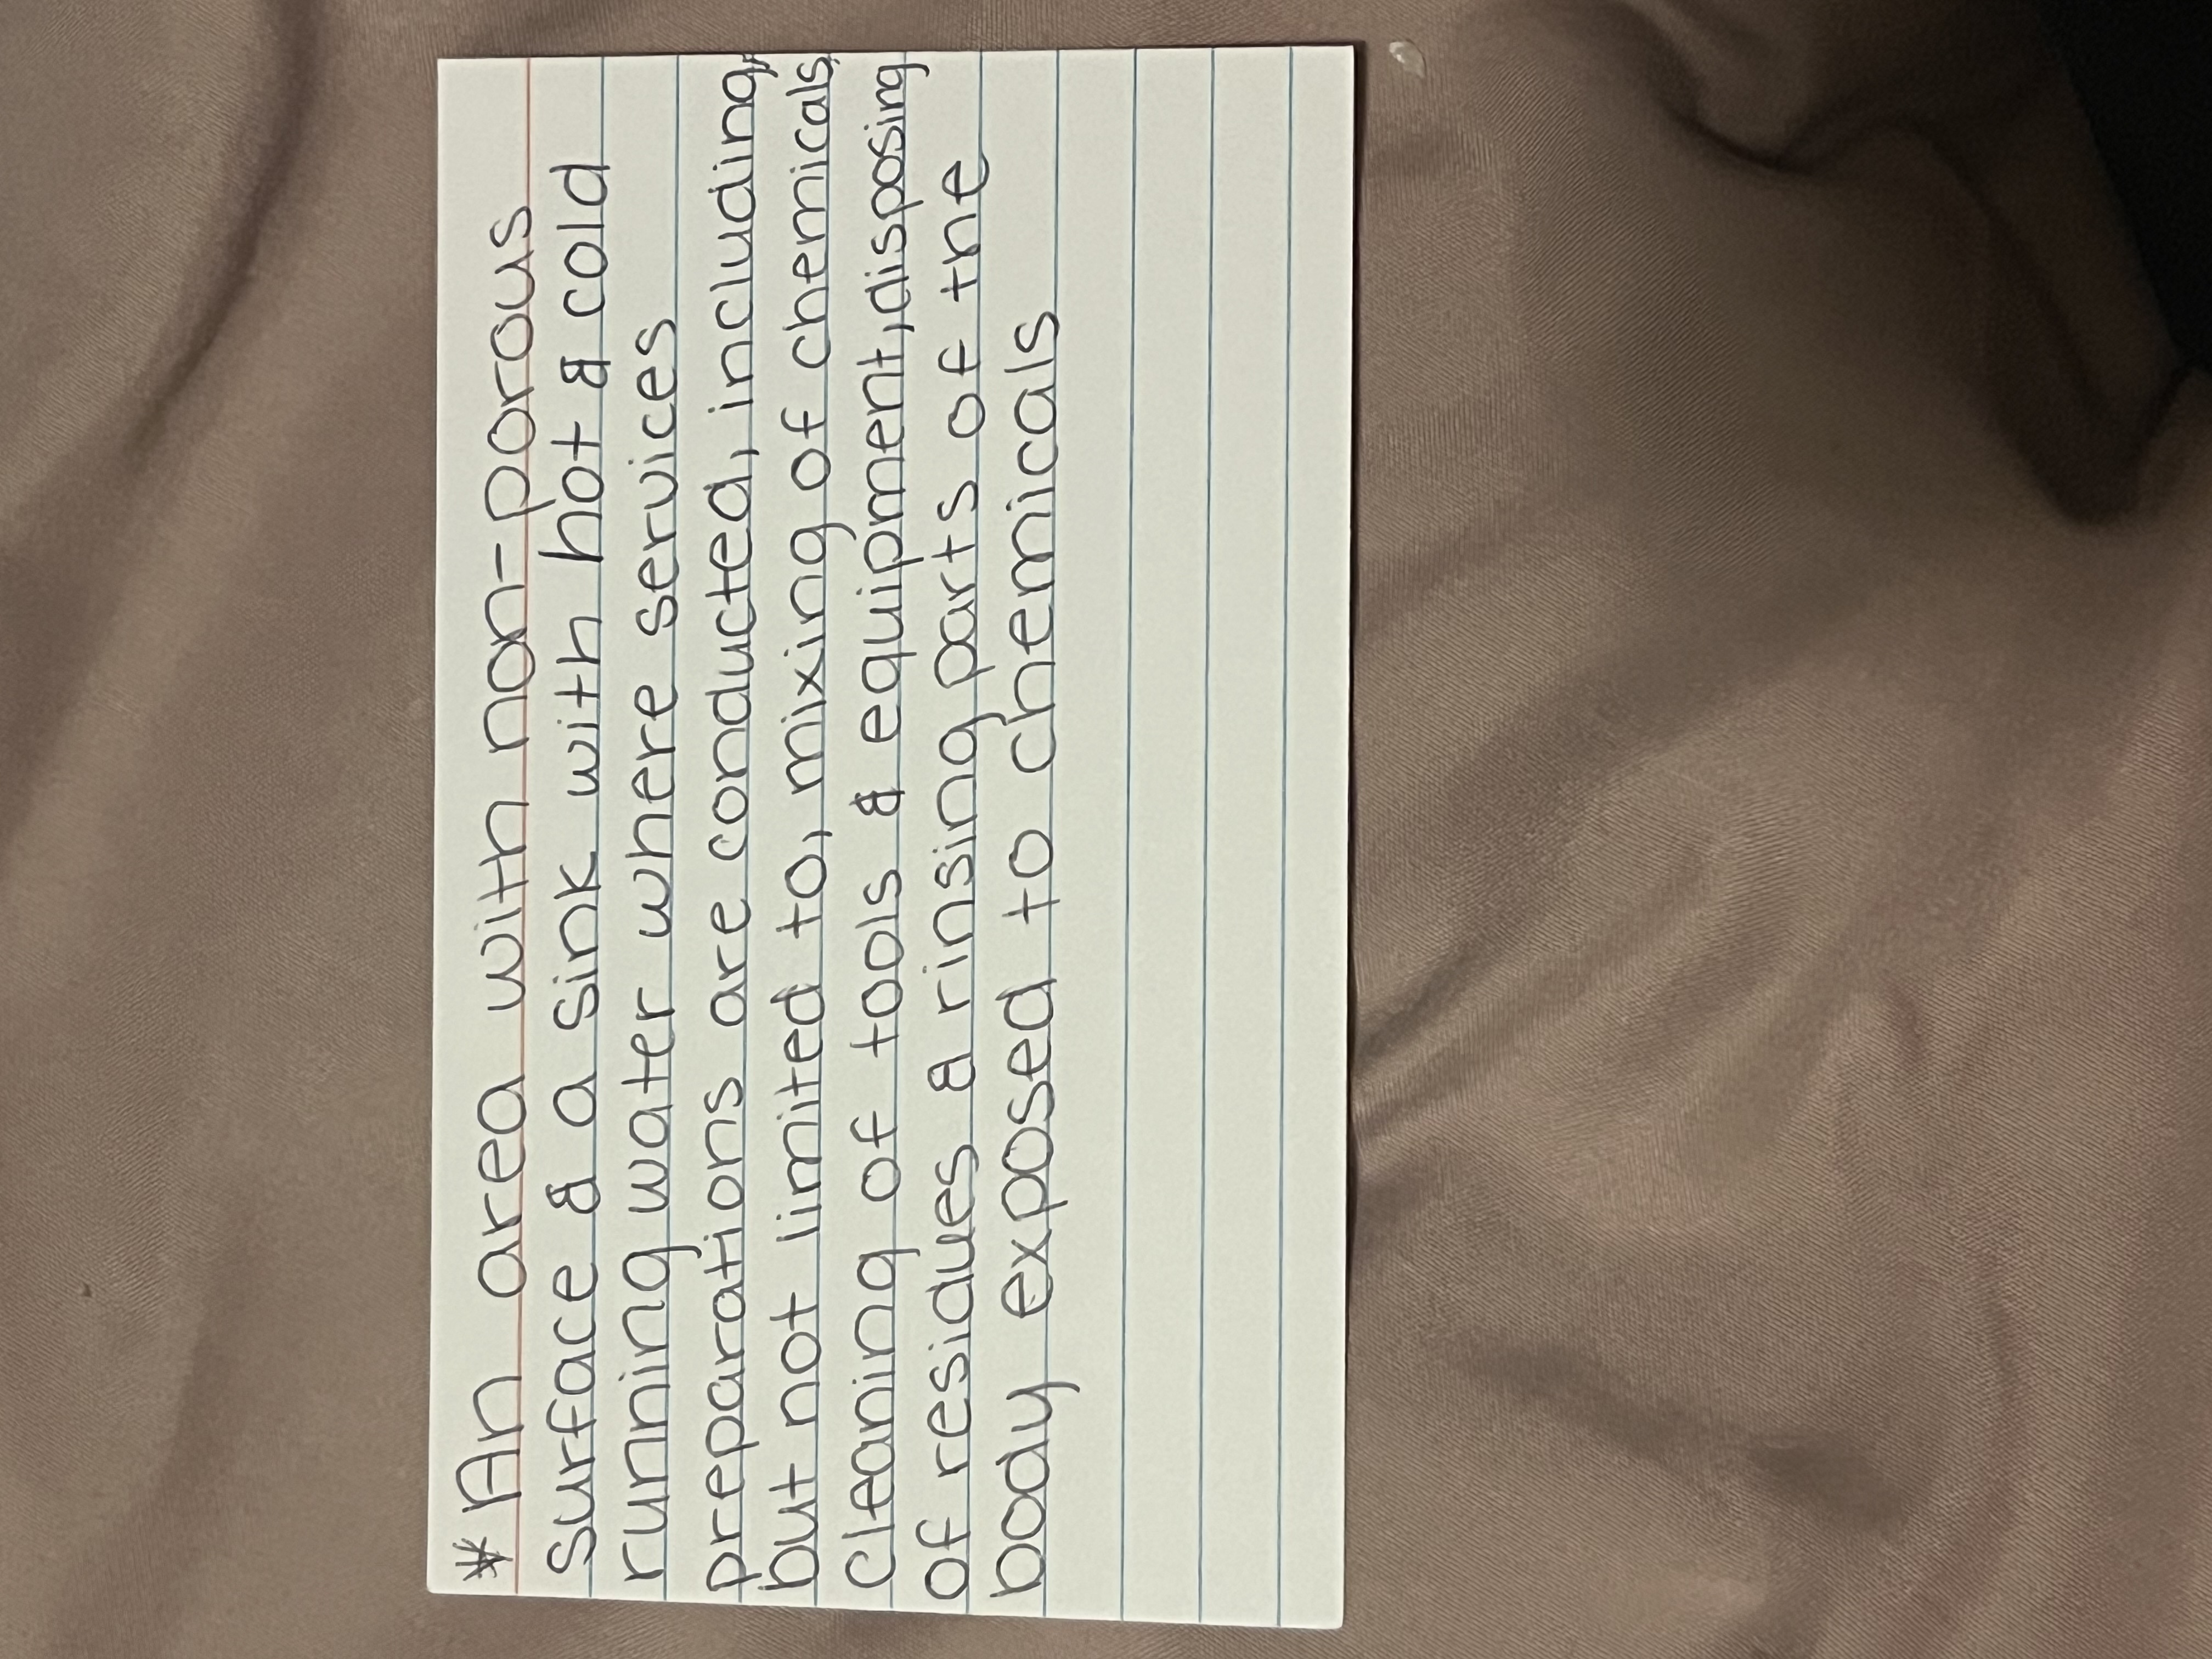 * An area with non-porous
surface & a sink with hot & cold
running water where services
preparations are conducted, including,
but not limited to, mixing of chemicals,
cleaning of tools & equipment, disposing
of residues & rinsing parts of the
body exposed to chemicals